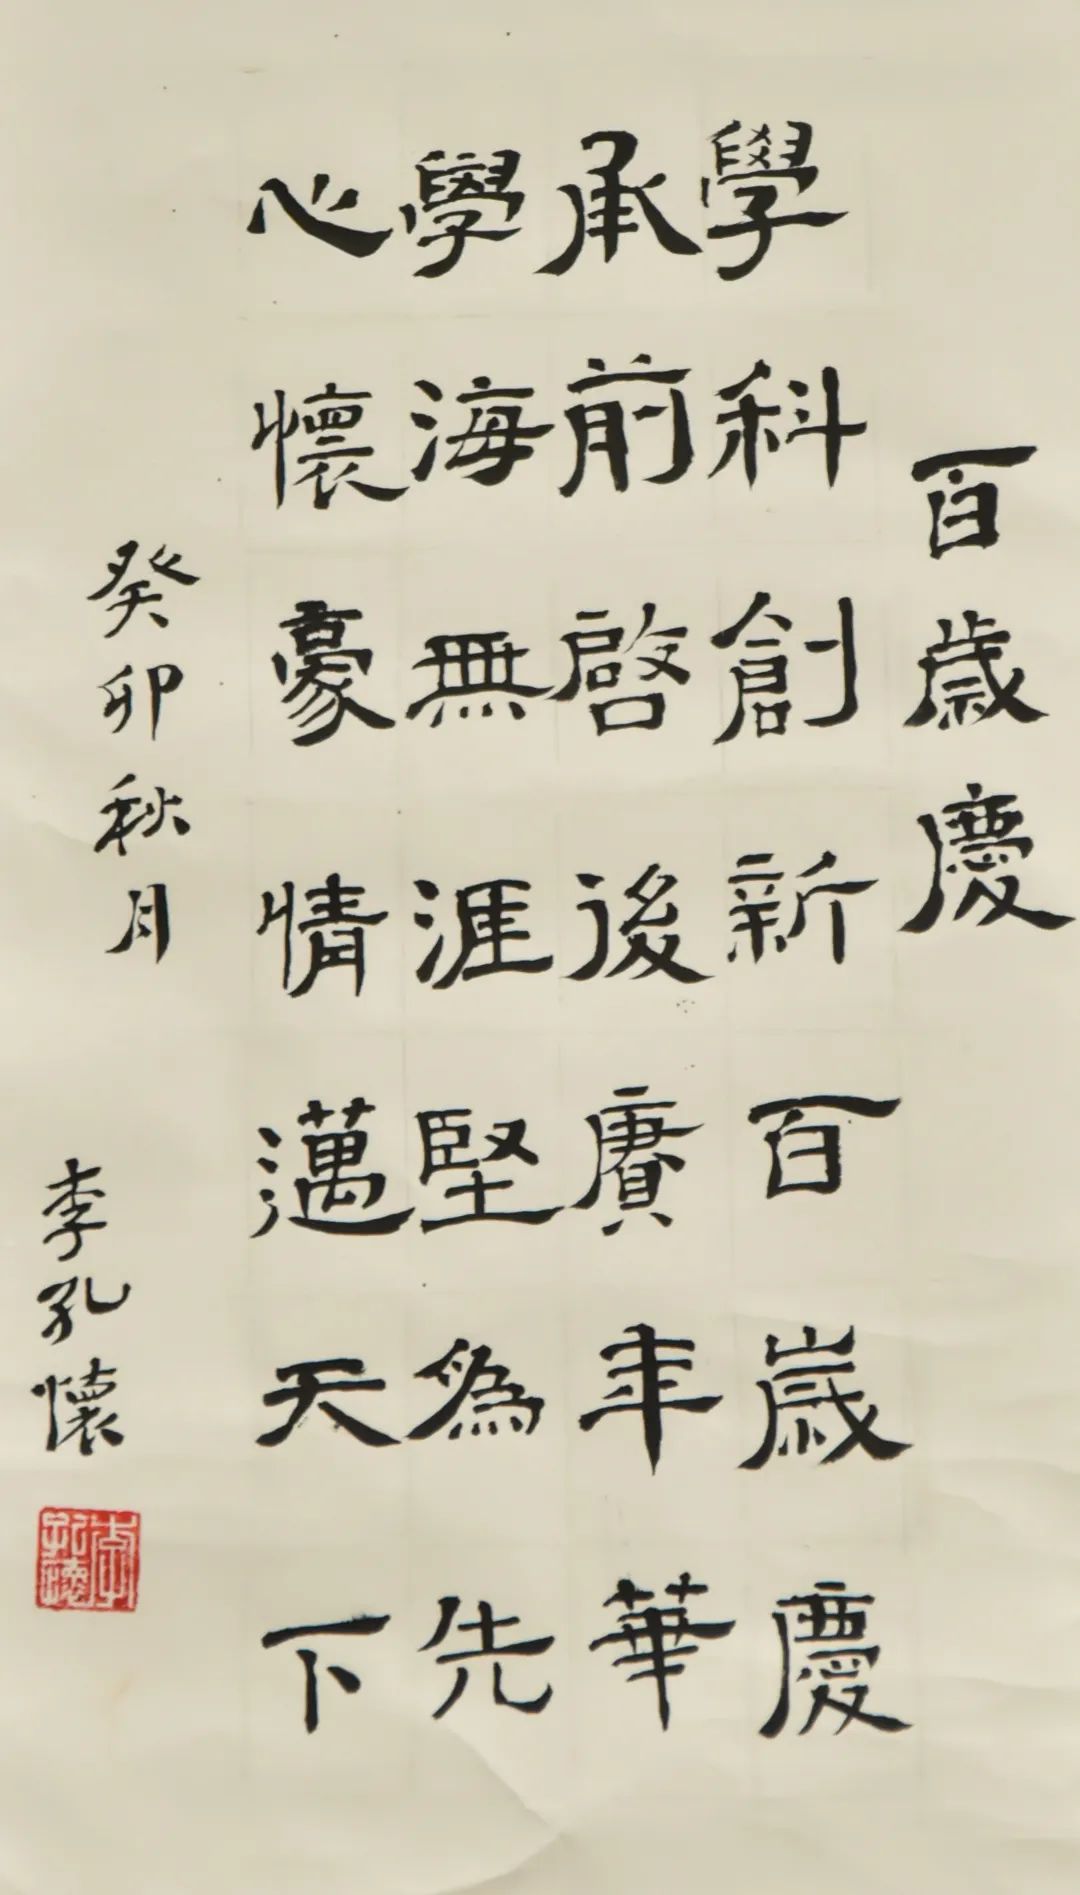 百歲慶
學科創新百歲慶
承前啓後賡年華
學海無涯堅為先
心懷豪情邁天下
癸卯秋月
李孔懷
李孔懷